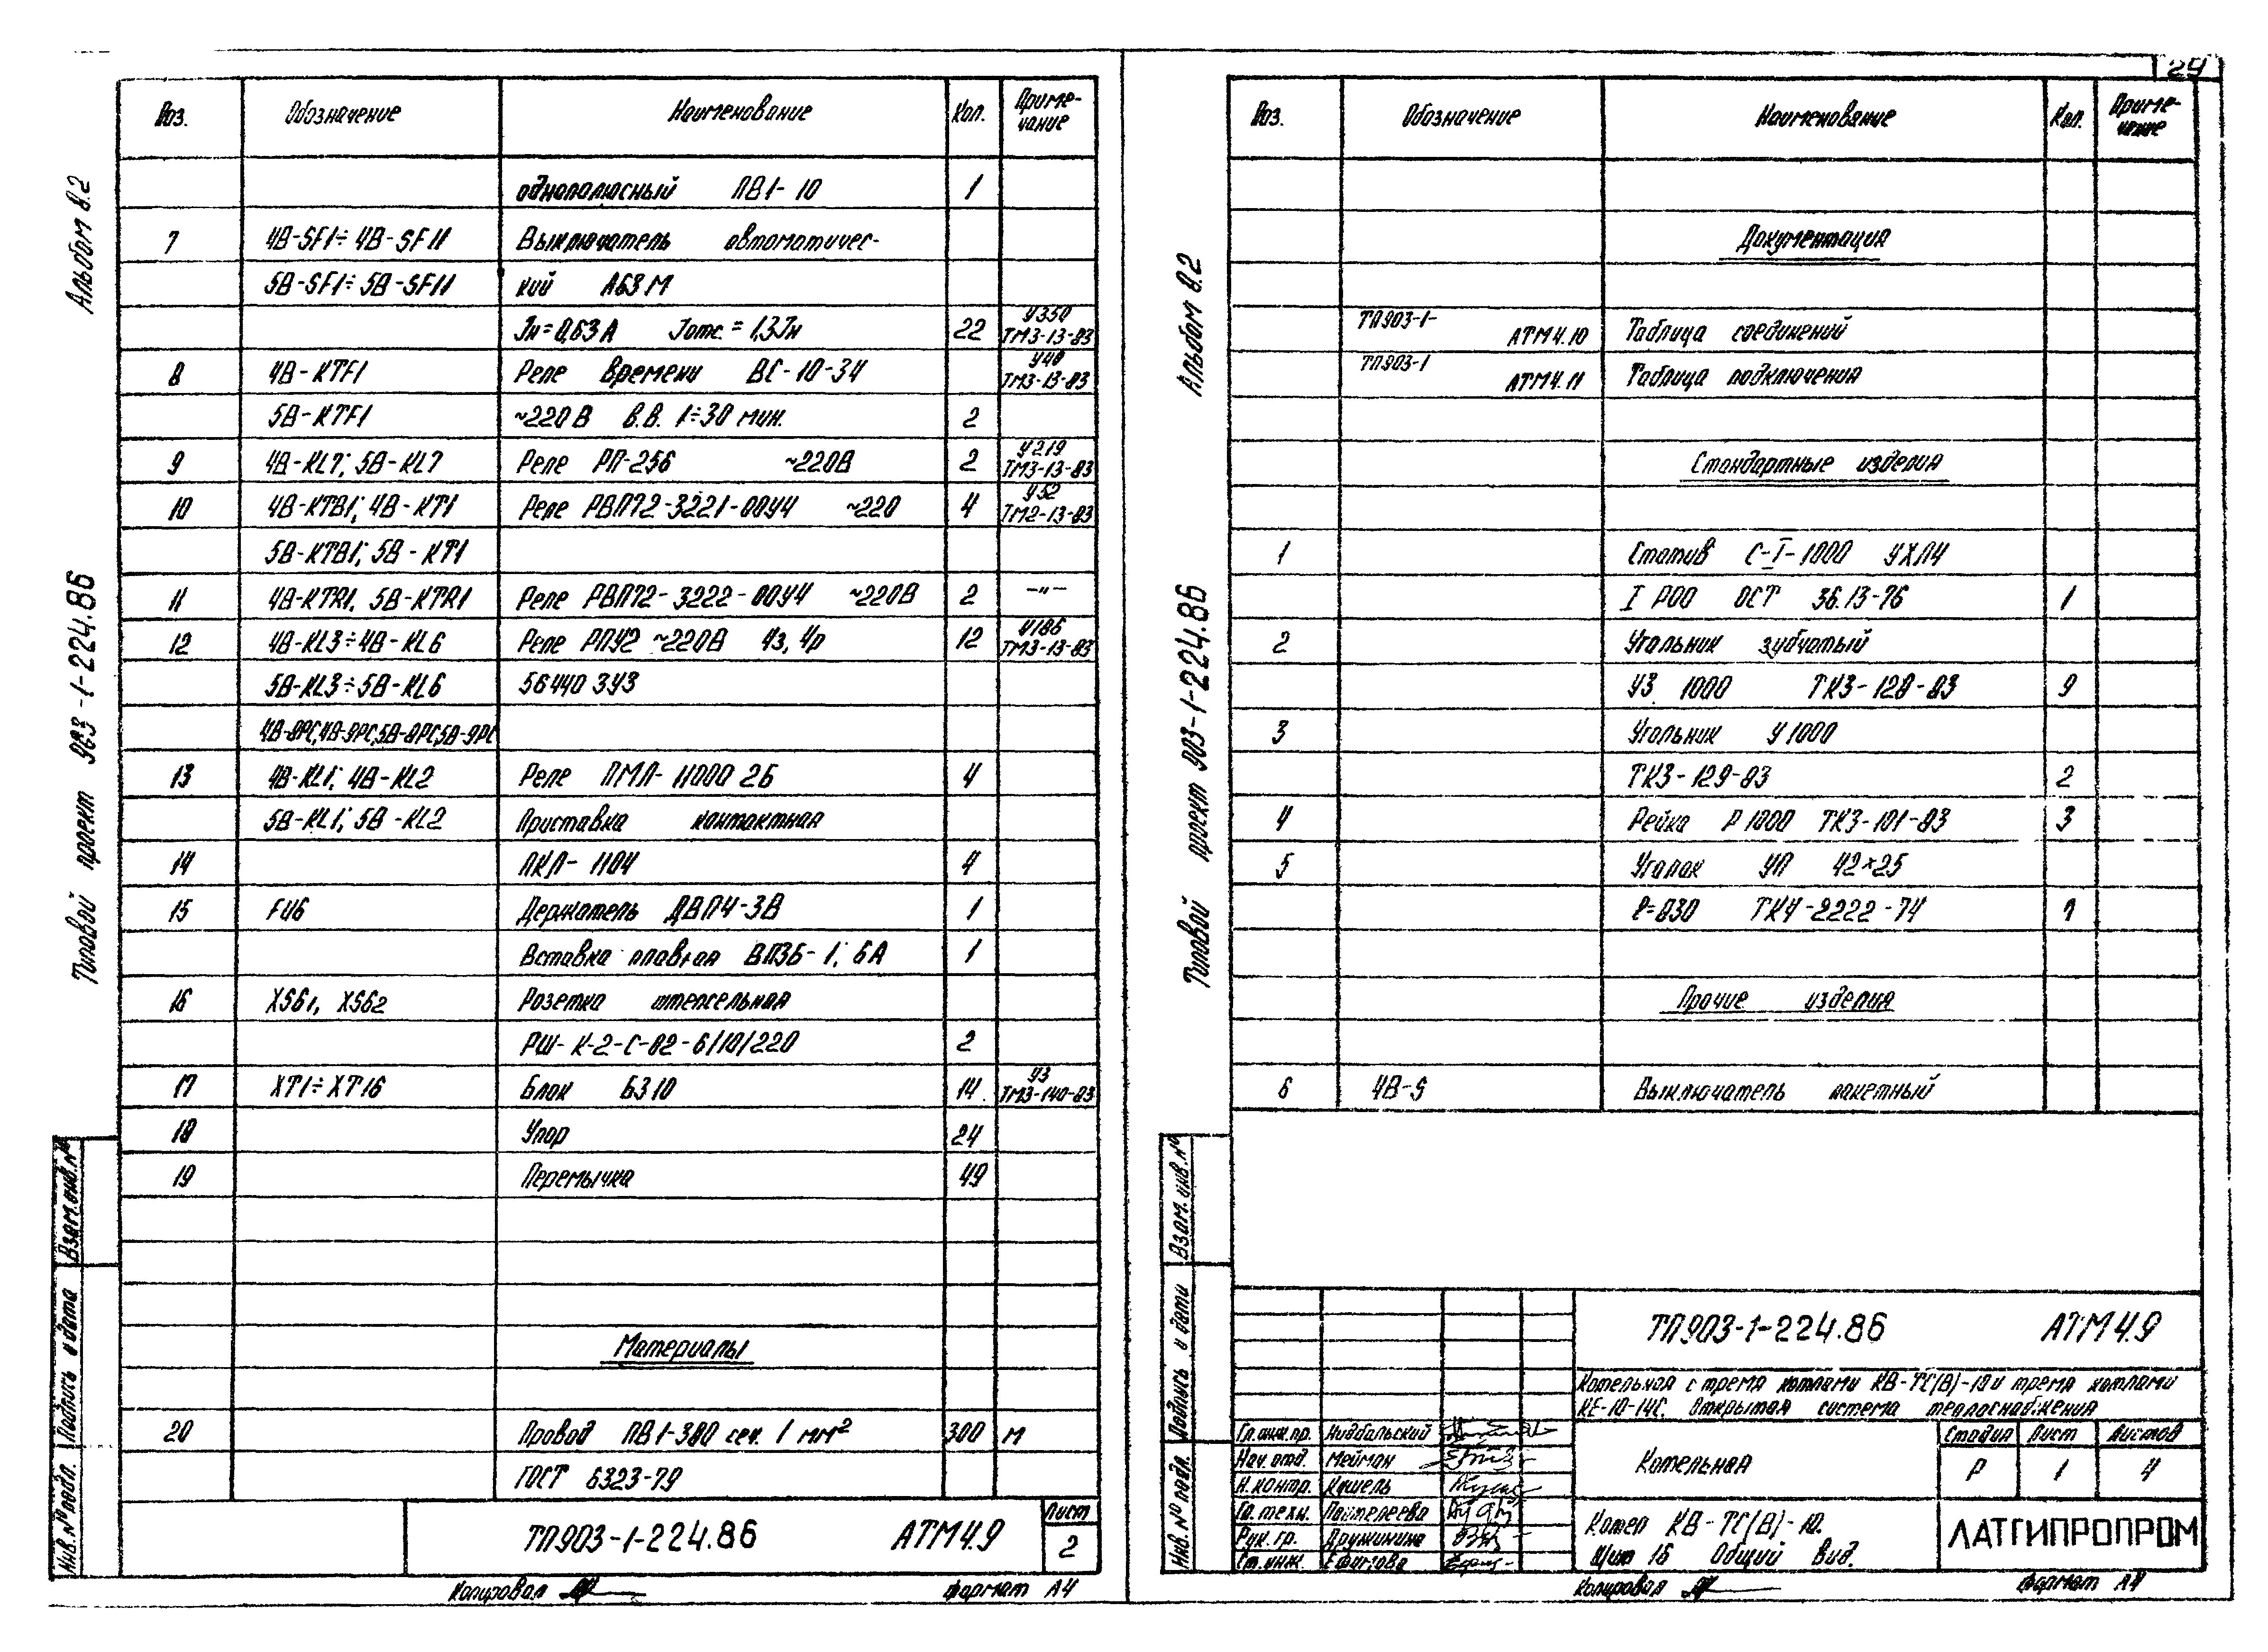 24
Альбом 8.2
Типовой проект 903-1-224.86
Поз. Обозначение Наименование Кол. Приме-
чание
однополюсный ПВ1-10 1
7 4В-SF1÷4В-SF11 Выключатель автоматичес-
5В-SF1÷5В-SF11 кий А63М
Jн=0,63А Jотс.=1,3Jн 22 У350 ТМ3-13-83
8 4В-КТF1 Реле времени ВС-10-34 У48 ТМ3-13-83
5В-КТF1 ~220В в.в. 1÷30 мин. 2
9 4В-КL7; 5В-КL7 Реле РП-256 ~220В 2 У219 ТМ3-13-83
10 4В-КТВ1; 4В-КТ1 Реле РВП72-3221-00У4 ~220 4 У52 ТМ2-13-83
5В-КТВ1; 5В-КТ1
11 4В-КТR1, 5В-КТR1 Реле РВП72-3222-00У4 ~220В 2 —"—
12 4В-КL3÷4В-КL6 Реле РПУ2 ~220В 4з, 4р 12 У186 ТМ3-13-83
5В-КL3÷5В-КL6 56440 3У3
4В-8РС,4В-9РС,5В-8РС,5В-9РС
13 4В-КL1; 4В-КL2 Реле ПМЛ-11000 2Б 4
5В-КL1; 5В-КL2 Приставка контактная
14 ПКЛ-1104 4
15 FU6 Держатель ДВП4-3В 1
Вставка плавкая ВП3Б-1; 6А 1
16 XS61, XS62 Розетка штепсельная
РШ-К-2-С-02-6/10/220 2
17 ХТ1÷ХТ16 Блок Б310 14 У3 ТМ3-140-83
18 Упор 24
19 Перемычка 49
Материалы
20 Провод ПВ1-380 сеч. 1 мм² 300 м
ГОСТ 6323-79
Взам.инв.№
Подпись и дата
Инв.№ подл.
ТП903-1-224.86 АТМ4.9 Лист
2
Копировал формат А4
Альбом 8.2
Типовой проект 903-1-224.86
Поз. Обозначение Наименование Кол. Приме-
чание
Документация
ТП903-1- АТМ4.10 Таблица соединений
ТП903-1 АТМ4.11 Таблица подключения
Стандартные изделия
1 Статив С-I-1000 УХЛ4
I Р00 ОСТ 36.13-76 1
2 Угольник зубчатый
У3 1000 ТК3-128-83 9
3 Угольник У1000
ТК3-129-83 2
4 Рейка Р1000 ТК3-101-83 3
5 Уголок УП 42×25
ℓ=830 ТК4-2222-74
Прочие изделия
6 4В-S Выключатель пакетный
Взам.инв.№
Подпись и дата
Инв.№ подл.
ТП903-1-224.86 АТМ4.9
Котельная с тремя котлами КВ-ТС(В)-10 и тремя котлами
КЕ-10-14С. Открытая система теплоснабжения
Гл.инж.пр. Нидбальский
Нач.отд. Мейман
Н.контр. Кушель
Гл.техн. Пантелеева
Рук.гр. Дружинина
Ст.инж. Ефимова
Котельная
Стадия Лист Листов
Р 1 4
Котел КВ-ТС(В)-10.
Щит 16 Общий вид.
ЛАТГИПРОПРОМ
Копировал формат А4